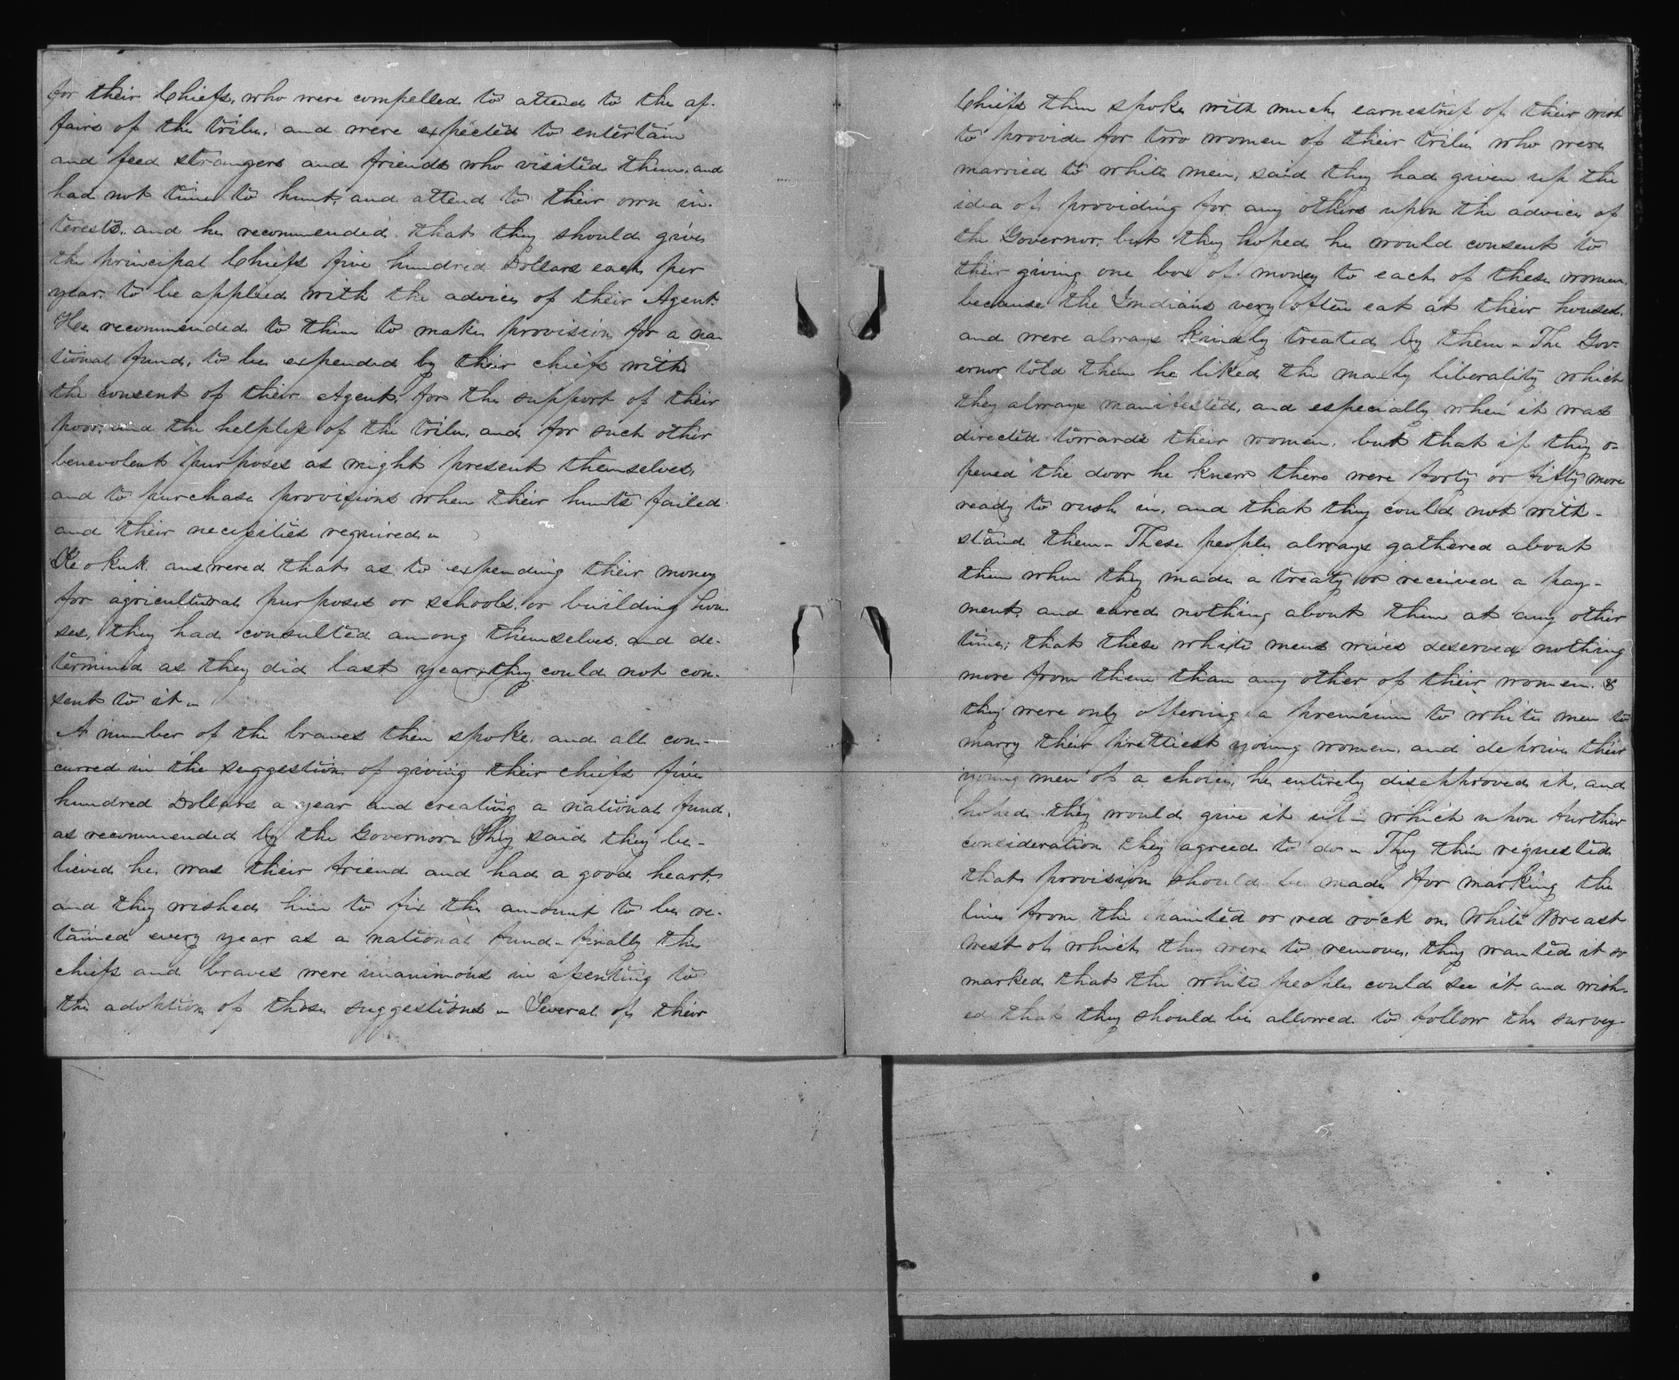 for their Chiefs, who were compelled to attend to the af-
fairs of the tribe, and were expected to entertain
and feed strangers and friends who visited them, and
had not time to hunt, and attend to their own in-
terests, and he recommended that they should give
the principal Chiefs five hundred Dollars each per
year, to be applied with the advice of their Agent.
He recommended to them to make provision for a na-
tional fund, to be expended by their chiefs with
the consent of their Agent, for the support of their
poor, and the helpless of the tribe, and for such other
benevolent purposes as might present themselves,
and to purchase provisions when their hunts failed
and their necessities required -
Keokuk answered that as to expending their money
for agricultural purposes or schools, or building hou-
ses, they had consulted among themselves, and de-
termined as they did last year, they could not con-
sent to it -
A number of the braves then spoke, and all con-
curred in the suggestion of giving their chiefs five
hundred Dollars a year and creating a national fund,
as recommended by the Governor - They said they be-
lieved he was their friend and had a good heart,
and they wished him to fix the amount to be re-
tained every year as a national fund - finally the
chiefs and braves were unanimous in assenting to
the adoption of those suggestions - Several of their
Chiefs then spoke with much earnestness of their wish
to provide for two women of their tribe who were
married to white men, said they had given up the
idea of providing for any others upon the advice of
the Governor, but they hoped he would consent to
their giving one box of money to each of these women,
because the Indians very often eat at their houses,
and were always kindly treated by them - The Gov-
ernor told them he liked the manly liberality which
they always manifested, and especially when it was
directed towards their women, but that if they o-
pened the door he knew there were forty or fifty more
ready to rush in, and that they could not with-
stand them - These people always gathered about
them when they made a treaty or received a pay-
ment, and cared nothing about them at any other
time; that these white mens wives deserved nothing
more from them than any other of their women. &
they were only offering a premium to white men to
marry their prettiest young women, and deprive their
young men of a choice, he entirely disapproved it, and
hoped they would give it up - which upon further
consideration they agreed to do - They then requested
that provision should be made for marking the
line from the painted or red rock on White Breast
west of which they were to remove, they wanted it so
marked that the white people could see it, and wish-
ed that they should be allowed to follow the survey-